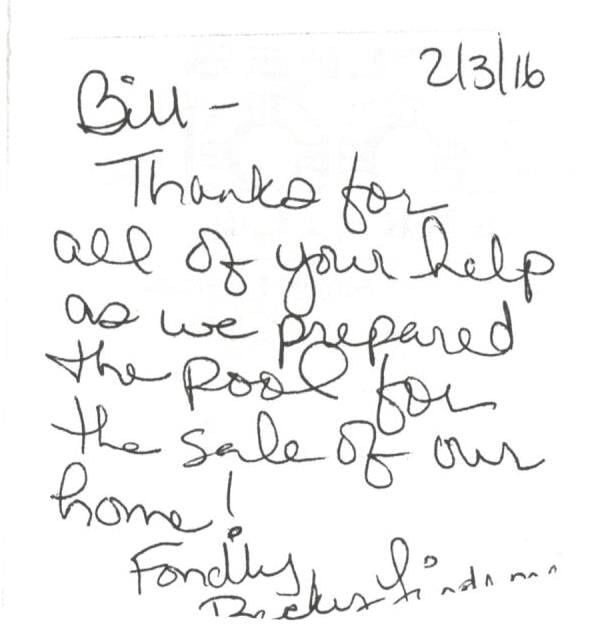 2/3/16
Bill -
Thanks for
all of your help
as we prepared
the pool for
the sale of our
home!
Fondly,